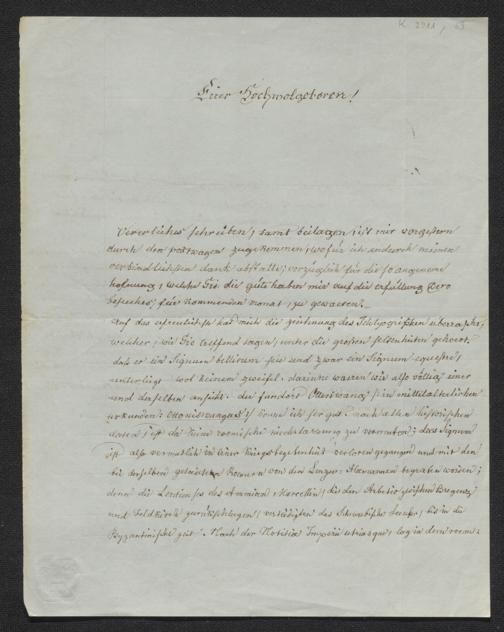 K. 2911,
Euer Hochwolgeboren!
Vererliches schreiben, samt beilagen, ist mir vorgestern
durch den postwagen zugekommen, wofür ich andurch meinen
verbindlichsten dank abstatte, vorzüglich für die so angeneme
hofnung, welche Sie die güte haben mir auf die erfüllung Dero
besuches, für kommenden monat, zu gewaeren.
Auf das erfreulichste hat mich die zeichnung des überrascht,
welcher, wie Sie treffend sagen, unter die großen seltenheiten gehoert.
daß er ein Signum bellicum sei und zwar ein Signum equestre,
unterligt wol keinem zweifel. darinne waeren wir also völlig einer
und derselben ansicht. die fundort (in mittelalterlichen
urkunden: ) kenne ich ser gut. nach allen historischen
daten, ist da keine roemische niderlassung zu vermuten; das Signum
ist also vermutlich in einer kriegsbegebenheit verloren gegangen und mit den
bei derselben getoeteten Roemern von den Alamannen begraben worden;
denn die Lentienses des Ammian Marcellin, die den Arbetio zwischen Bregenz
und Feldkirch zurückschlugen, verteidigten das bis in die
Byzantinische zeit. Nach der Notitia Imperii utriusque, lag in dem roem: